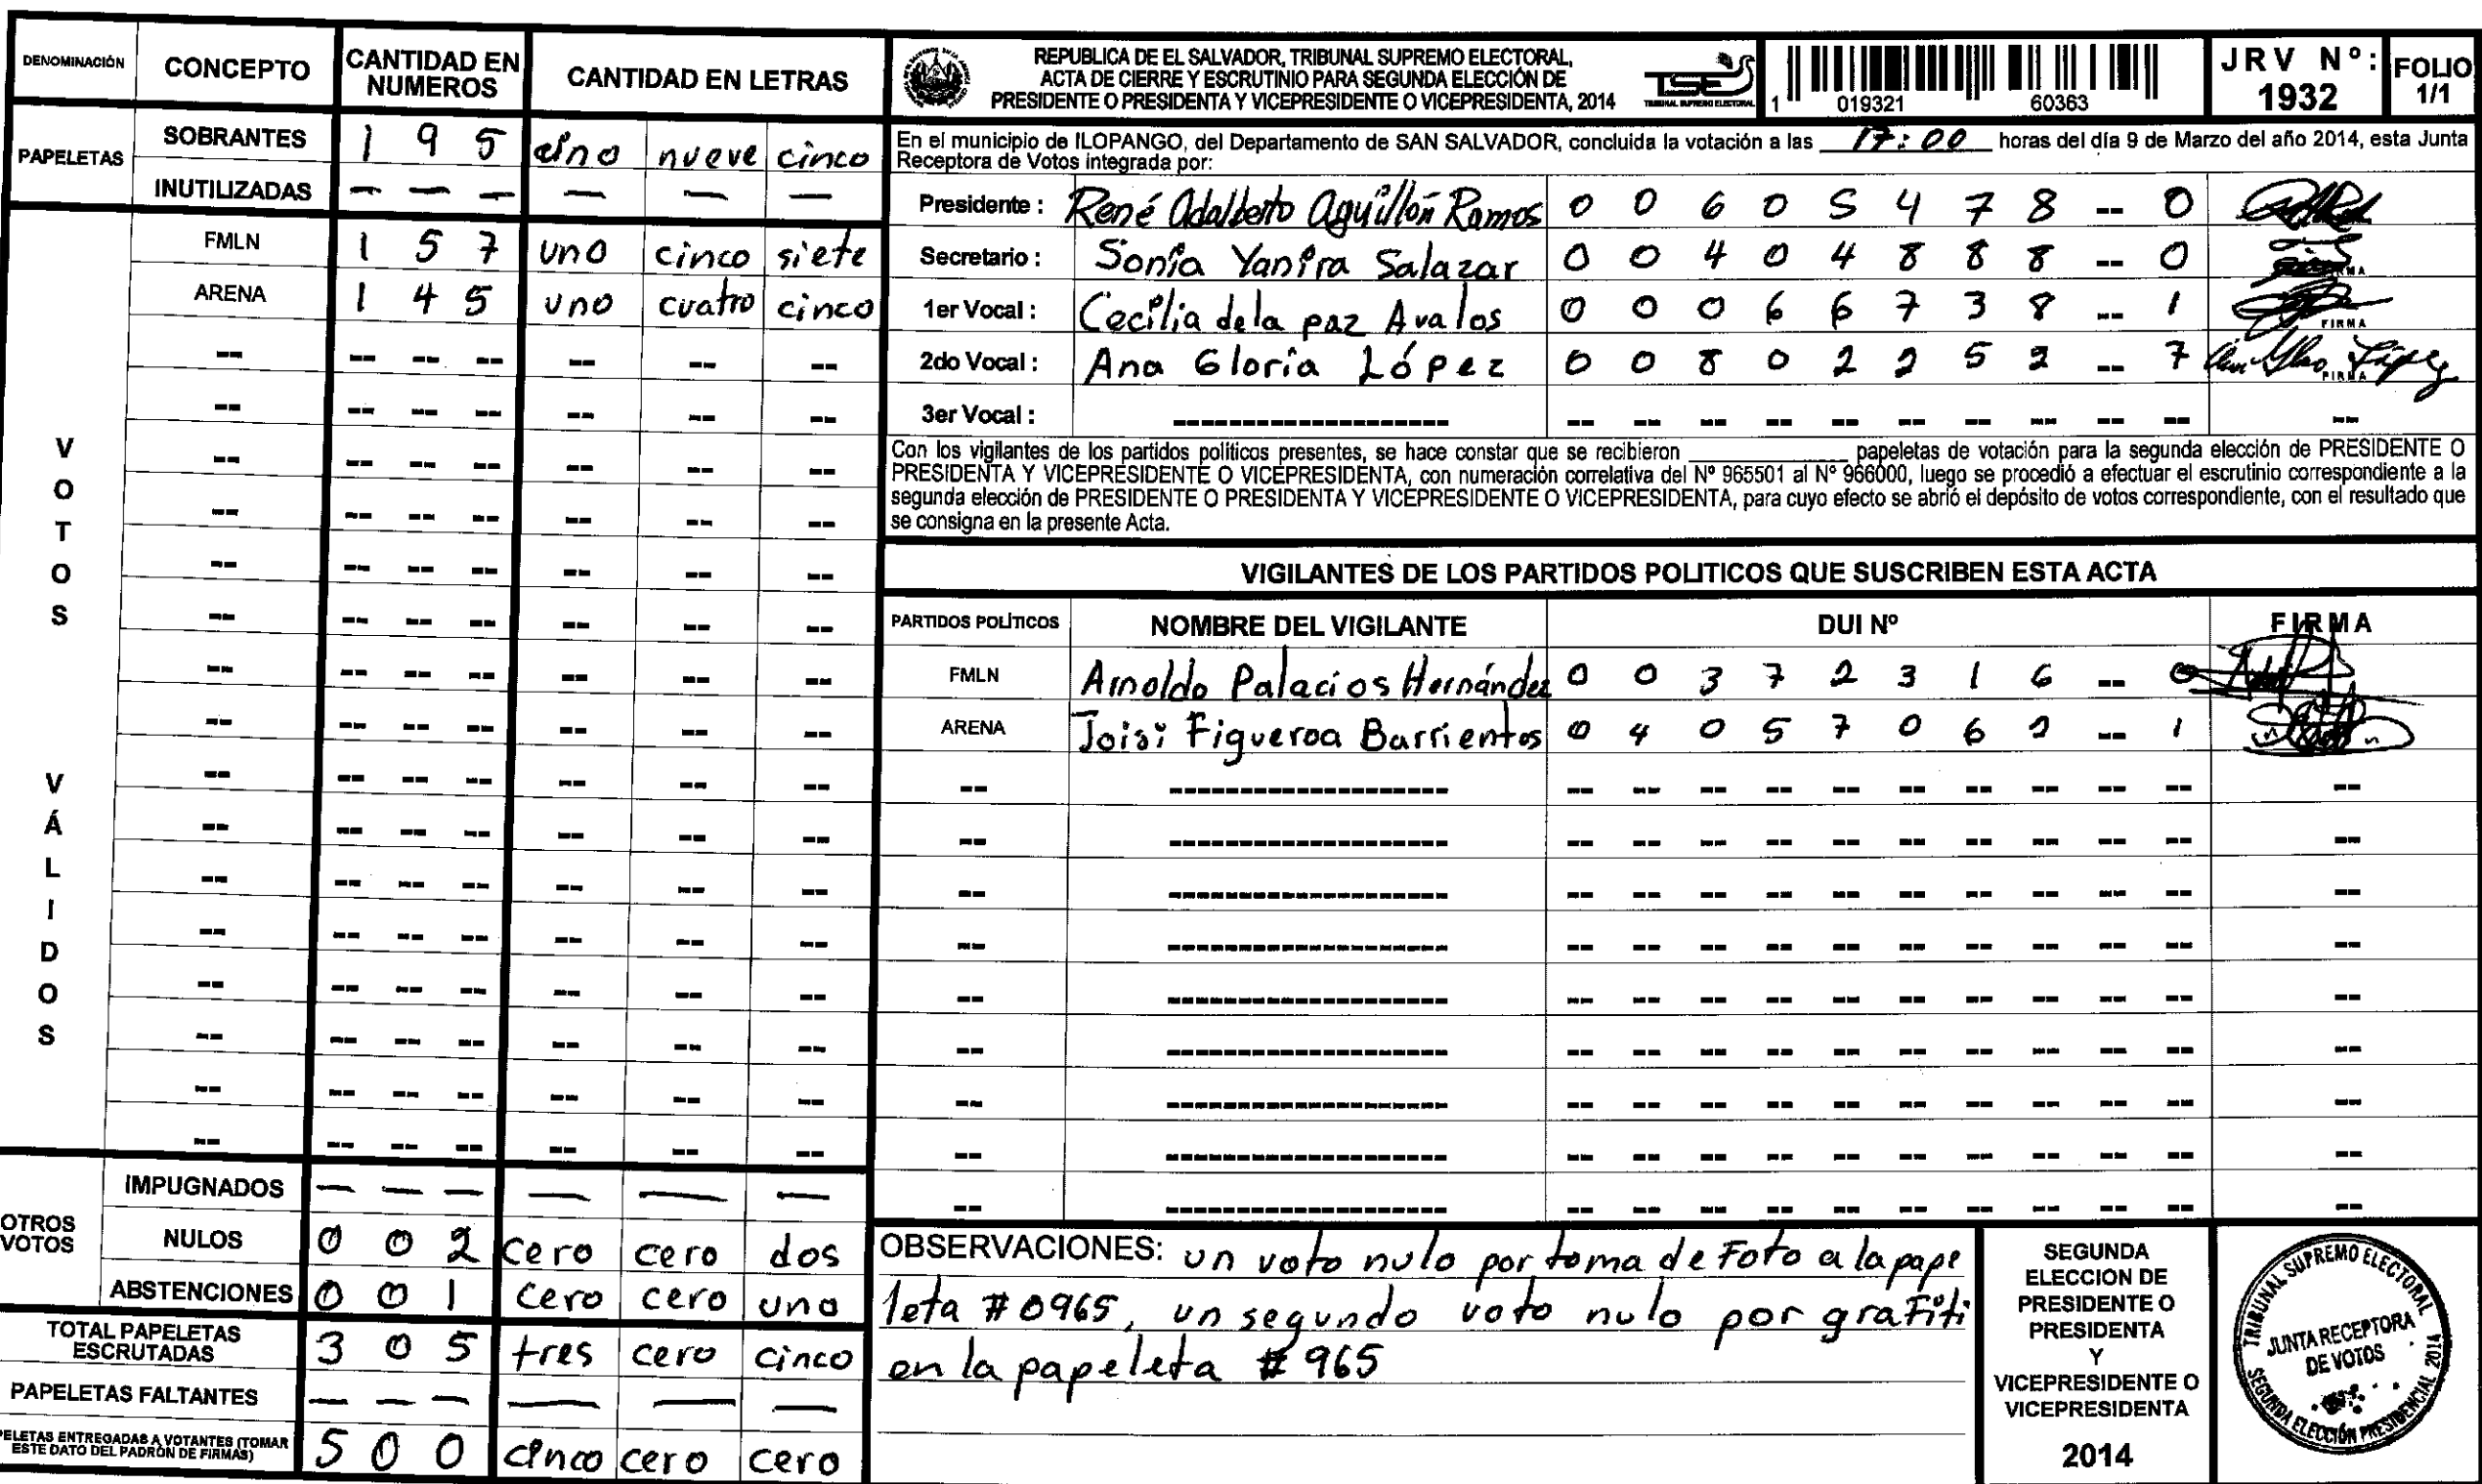 DENOMINACIÓN CONCEPTO CANTIDAD EN NUMEROS CANTIDAD EN LETRAS
PAPELETAS SOBRANTES 1 9 5 uno nueve cinco
INUTILIZADAS — — — — — —
VOTOS VÁLIDOS
FMLN 1 5 7 uno cinco siete
ARENA 1 4 5 uno cuatro cinco
OTROS VOTOS
IMPUGNADOS — — — — — —
NULOS 0 0 2 cero cero dos
ABSTENCIONES 0 0 1 cero cero uno
TOTAL PAPELETAS ESCRUTADAS 3 0 5 tres cero cinco
PAPELETAS FALTANTES — — — — — —
ENTREGADAS A VOTANTES (TOMAR ESTE DATO DEL PADRÓN DE FIRMAS) 5 0 0 cinco cero cero
REPUBLICA DE EL SALVADOR, TRIBUNAL SUPREMO ELECTORAL,
ACTA DE CIERRE Y ESCRUTINIO PARA SEGUNDA ELECCIÓN DE
PRESIDENTE O PRESIDENTA Y VICEPRESIDENTE O VICEPRESIDENTA, 2014
TSE
TRIBUNAL SUPREMO ELECTORAL
1 019321 60363
JRV Nº: 1932
FOLIO 1/1
En el municipio de ILOPANGO, del Departamento de SAN SALVADOR, concluida la votación a las 17:00 horas del día 9 de Marzo del año 2014, esta Junta
Receptora de Votos integrada por:
Presidente : René Adalberto Aguillón Ramos 0 0 6 0 5 4 7 8 -- 0
Secretario : Sonia Yanira Salazar 0 0 4 0 4 8 8 8 -- 0
1er Vocal : Cecilia de la paz Avalos 0 0 0 6 6 7 3 8 -- 1 FIRMA
2do Vocal : Ana Gloria López 0 0 8 0 2 2 5 2 -- 7 FIRMA
3er Vocal :
Con los vigilantes de los partidos políticos presentes, se hace constar que se recibieron ____ papeletas de votación para la segunda elección de PRESIDENTE O
PRESIDENTA Y VICEPRESIDENTE O VICEPRESIDENTA, con numeración correlativa del Nº 965501 al Nº 966000, luego se procedió a efectuar el escrutinio correspondiente a la
segunda elección de PRESIDENTE O PRESIDENTA Y VICEPRESIDENTE O VICEPRESIDENTA, para cuyo efecto se abrió el depósito de votos correspondiente, con el resultado que
se consigna en la presente Acta.
VIGILANTES DE LOS PARTIDOS POLITICOS QUE SUSCRIBEN ESTA ACTA
PARTIDOS POLÍTICOS NOMBRE DEL VIGILANTE DUI Nº FIRMA
FMLN Arnoldo Palacios Hernández 0 0 3 7 2 3 1 6 -- 0
ARENA Joisi Figueroa Barrientos 0 4 0 5 7 0 6 2 -- 1
OBSERVACIONES: un voto nulo por toma de Foto a la pape
leta # 0965, un segundo voto nulo por grafiti
en la papeleta # 965
SEGUNDA
ELECCION DE
PRESIDENTE O
PRESIDENTA
Y
VICEPRESIDENTE O
VICEPRESIDENTA
2014
TRIBUNAL SUPREMO ELECTORAL
JUNTA RECEPTORA
DE VOTOS
SEGUNDA ELECCIÓN PRESIDENCIAL 2014